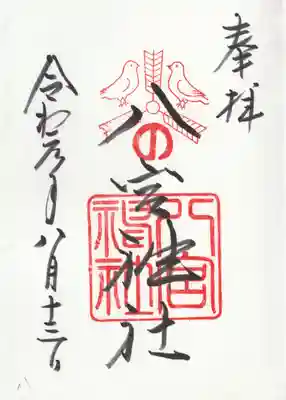 奉拝
八の宮神社
八宮神社
令和元年八月十三日